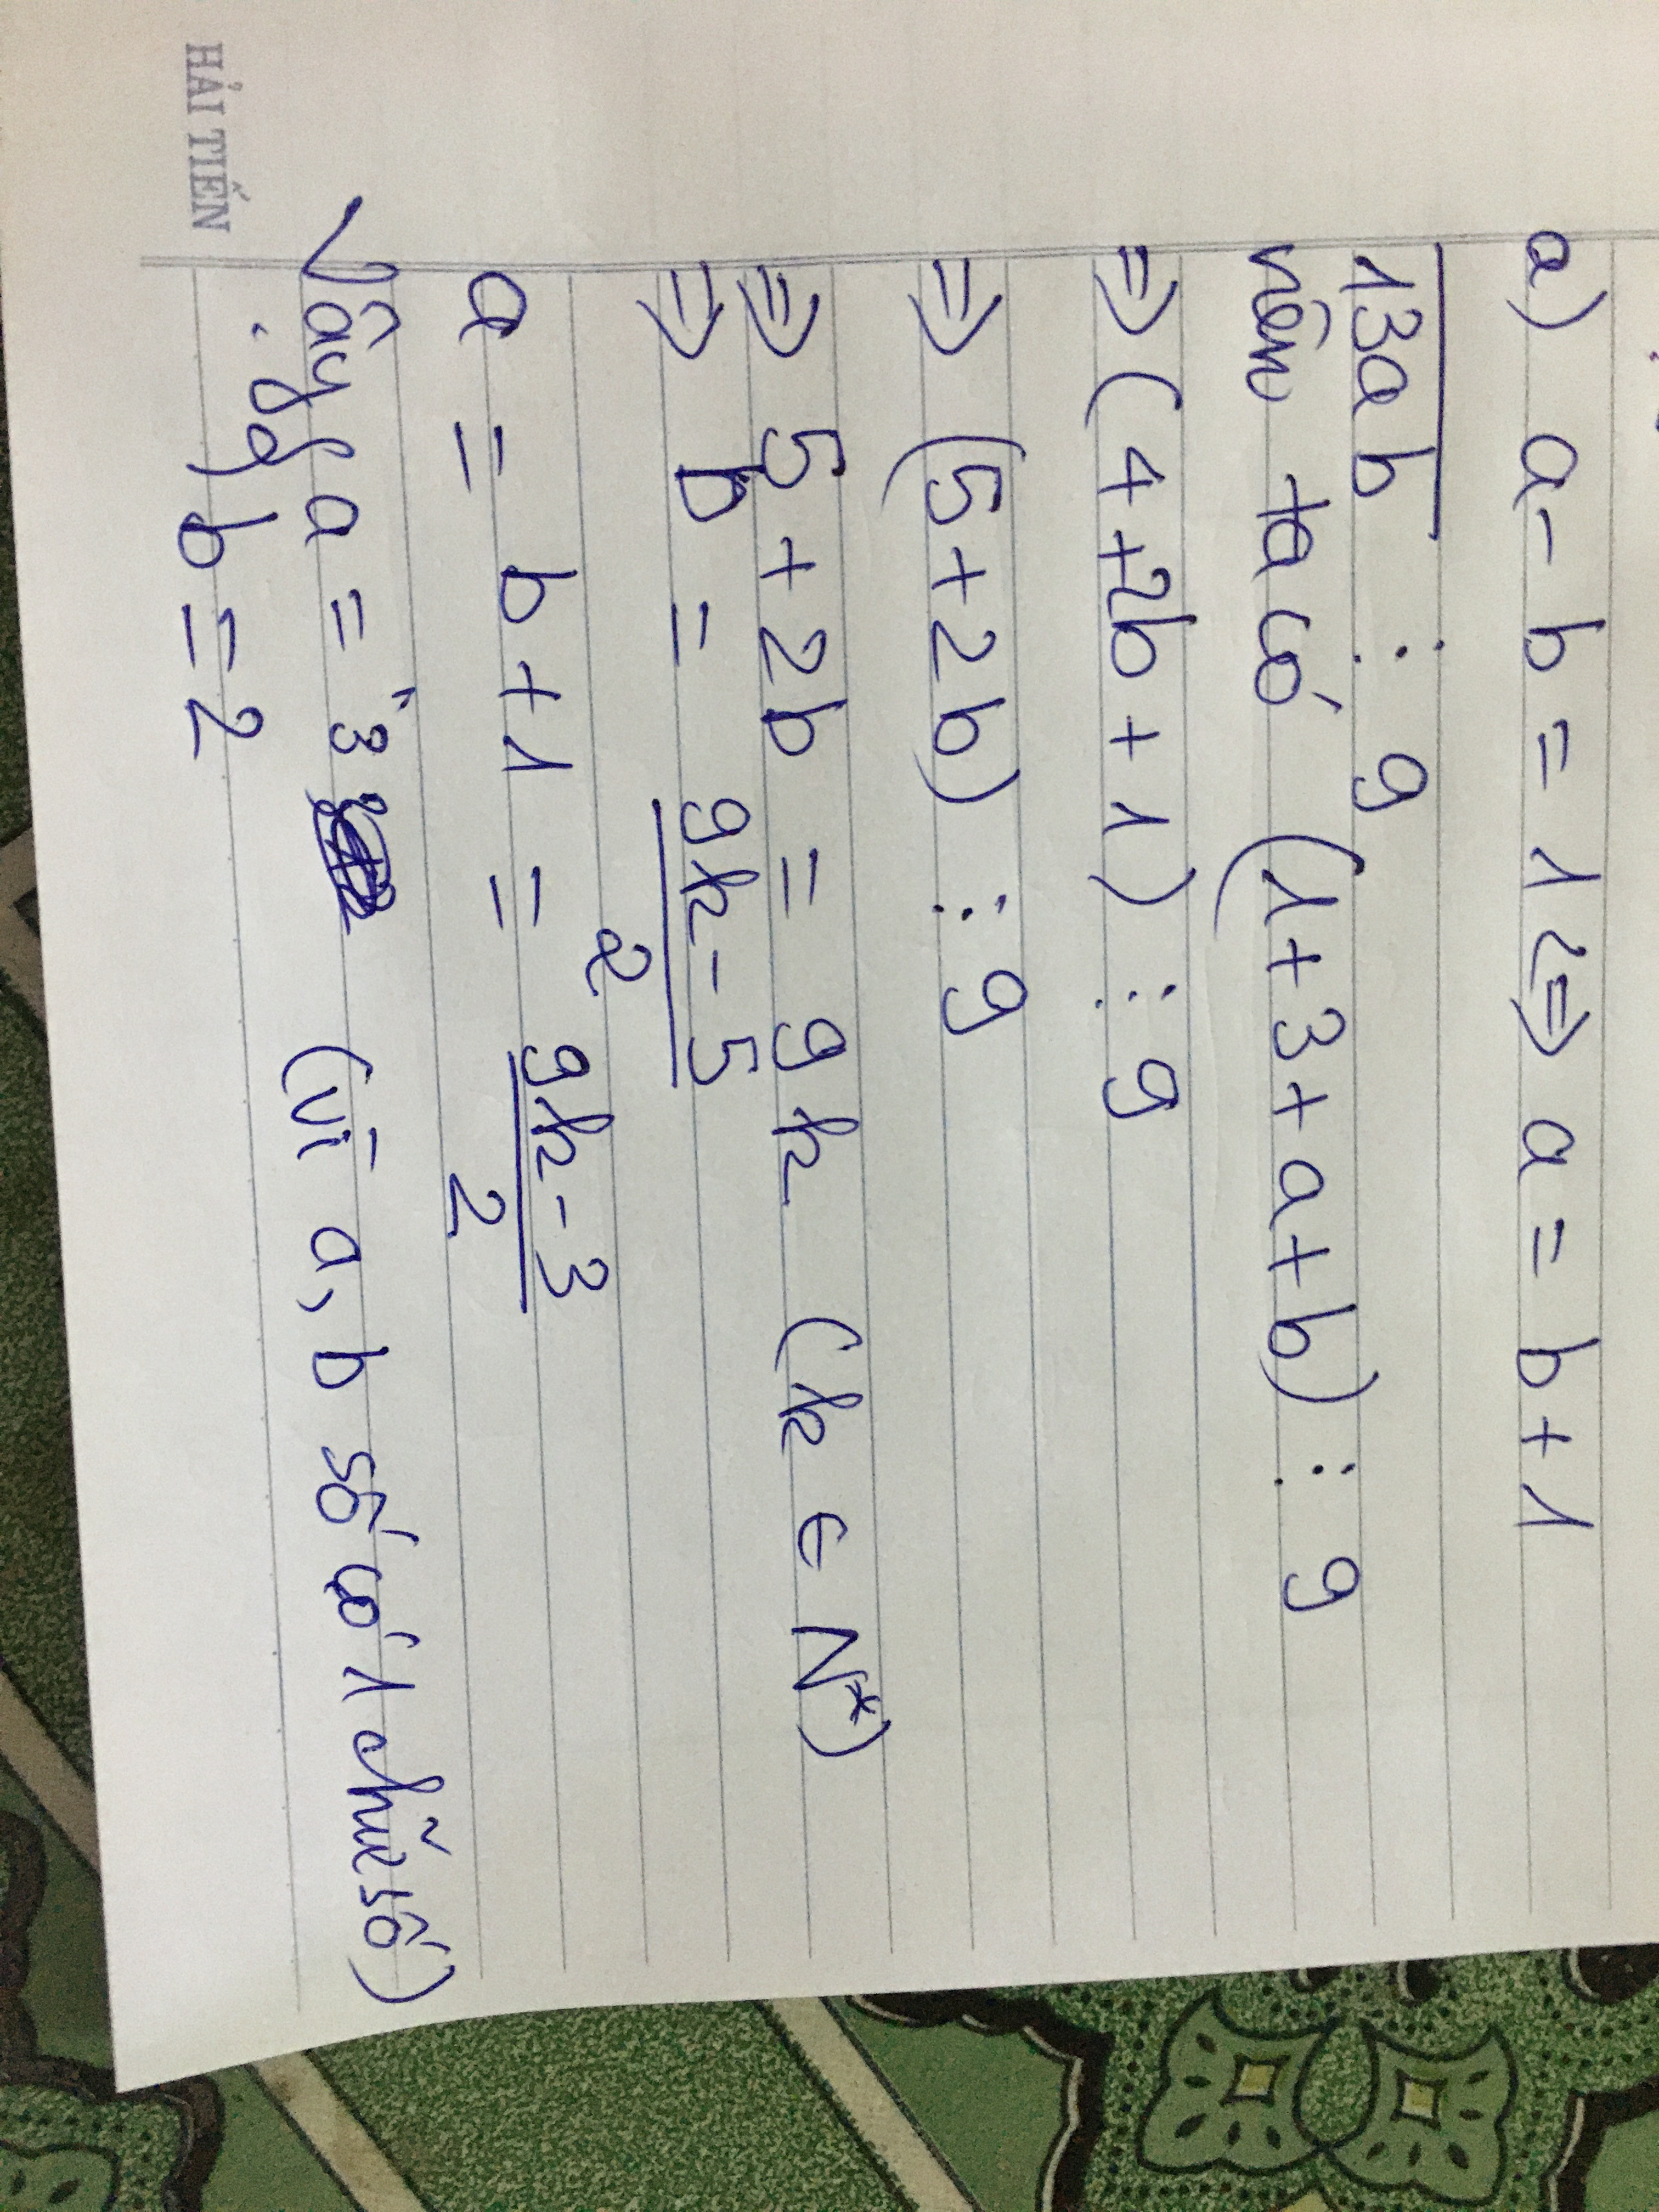 a) a - b = 1 <=> a = b + 1
13ab ⋮ 9
nên ta có (1 + 3 + a + b) ⋮ 9
=> (4 + 2b + 1) ⋮ 9
=> (5 + 2b) ⋮ 9
=> 5 + 2b = 9k (k ∈ N*)
=> b = (9k - 5)/2
a = b + 1 = (9k - 3)/2
Vậy { a = 3 (vì a, b số có 1 chữ số)
b = 2
HẢI TIẾN